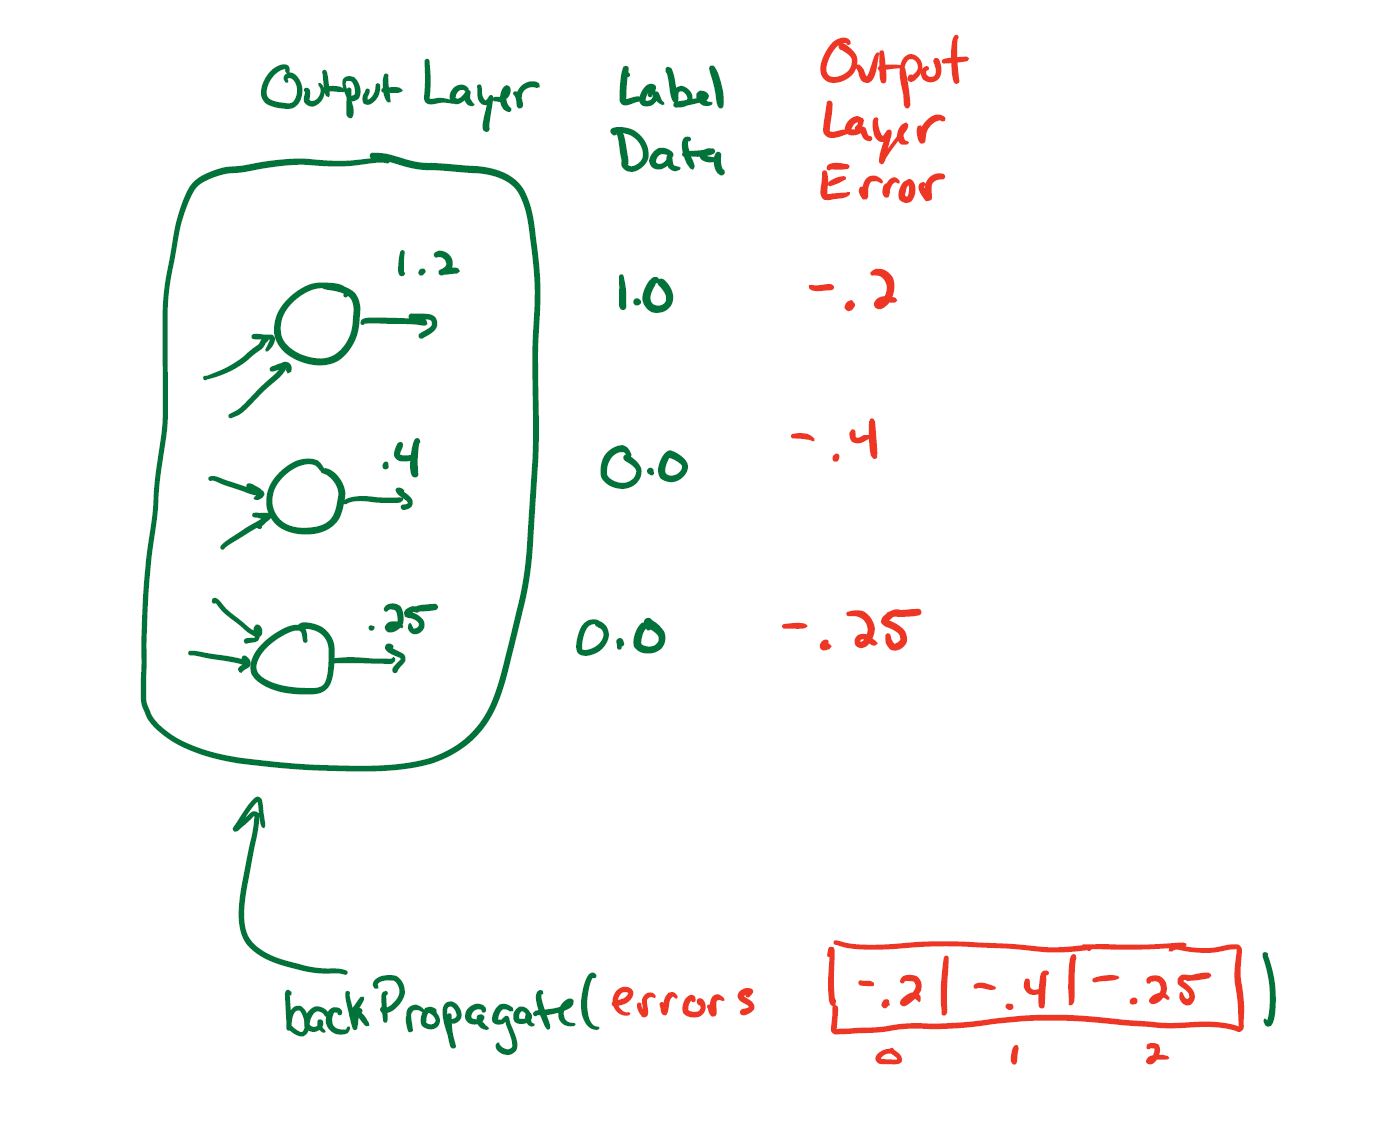 Output Layer
Label
Data
Output
Layer
Error
1.2
1.0
-.2
.4
0.0
-.4
.25
0.0
-.25
backPropagate(errors -.2 -.4 -.25 )
0 1 2